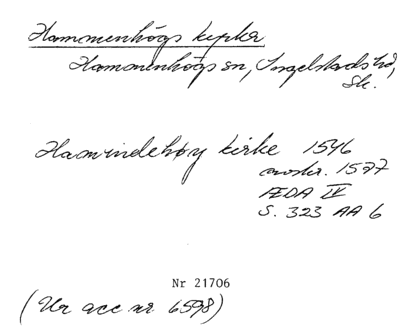 Hammenhögs kyrka
Hammenhögs sn, Ingelstads hd,
Sk.
Hamindehøy kirke 1546
avskr. 1577
ÆDA IV
S. 323 AA 6
Nr 21706
(Ur acc nr 6598)